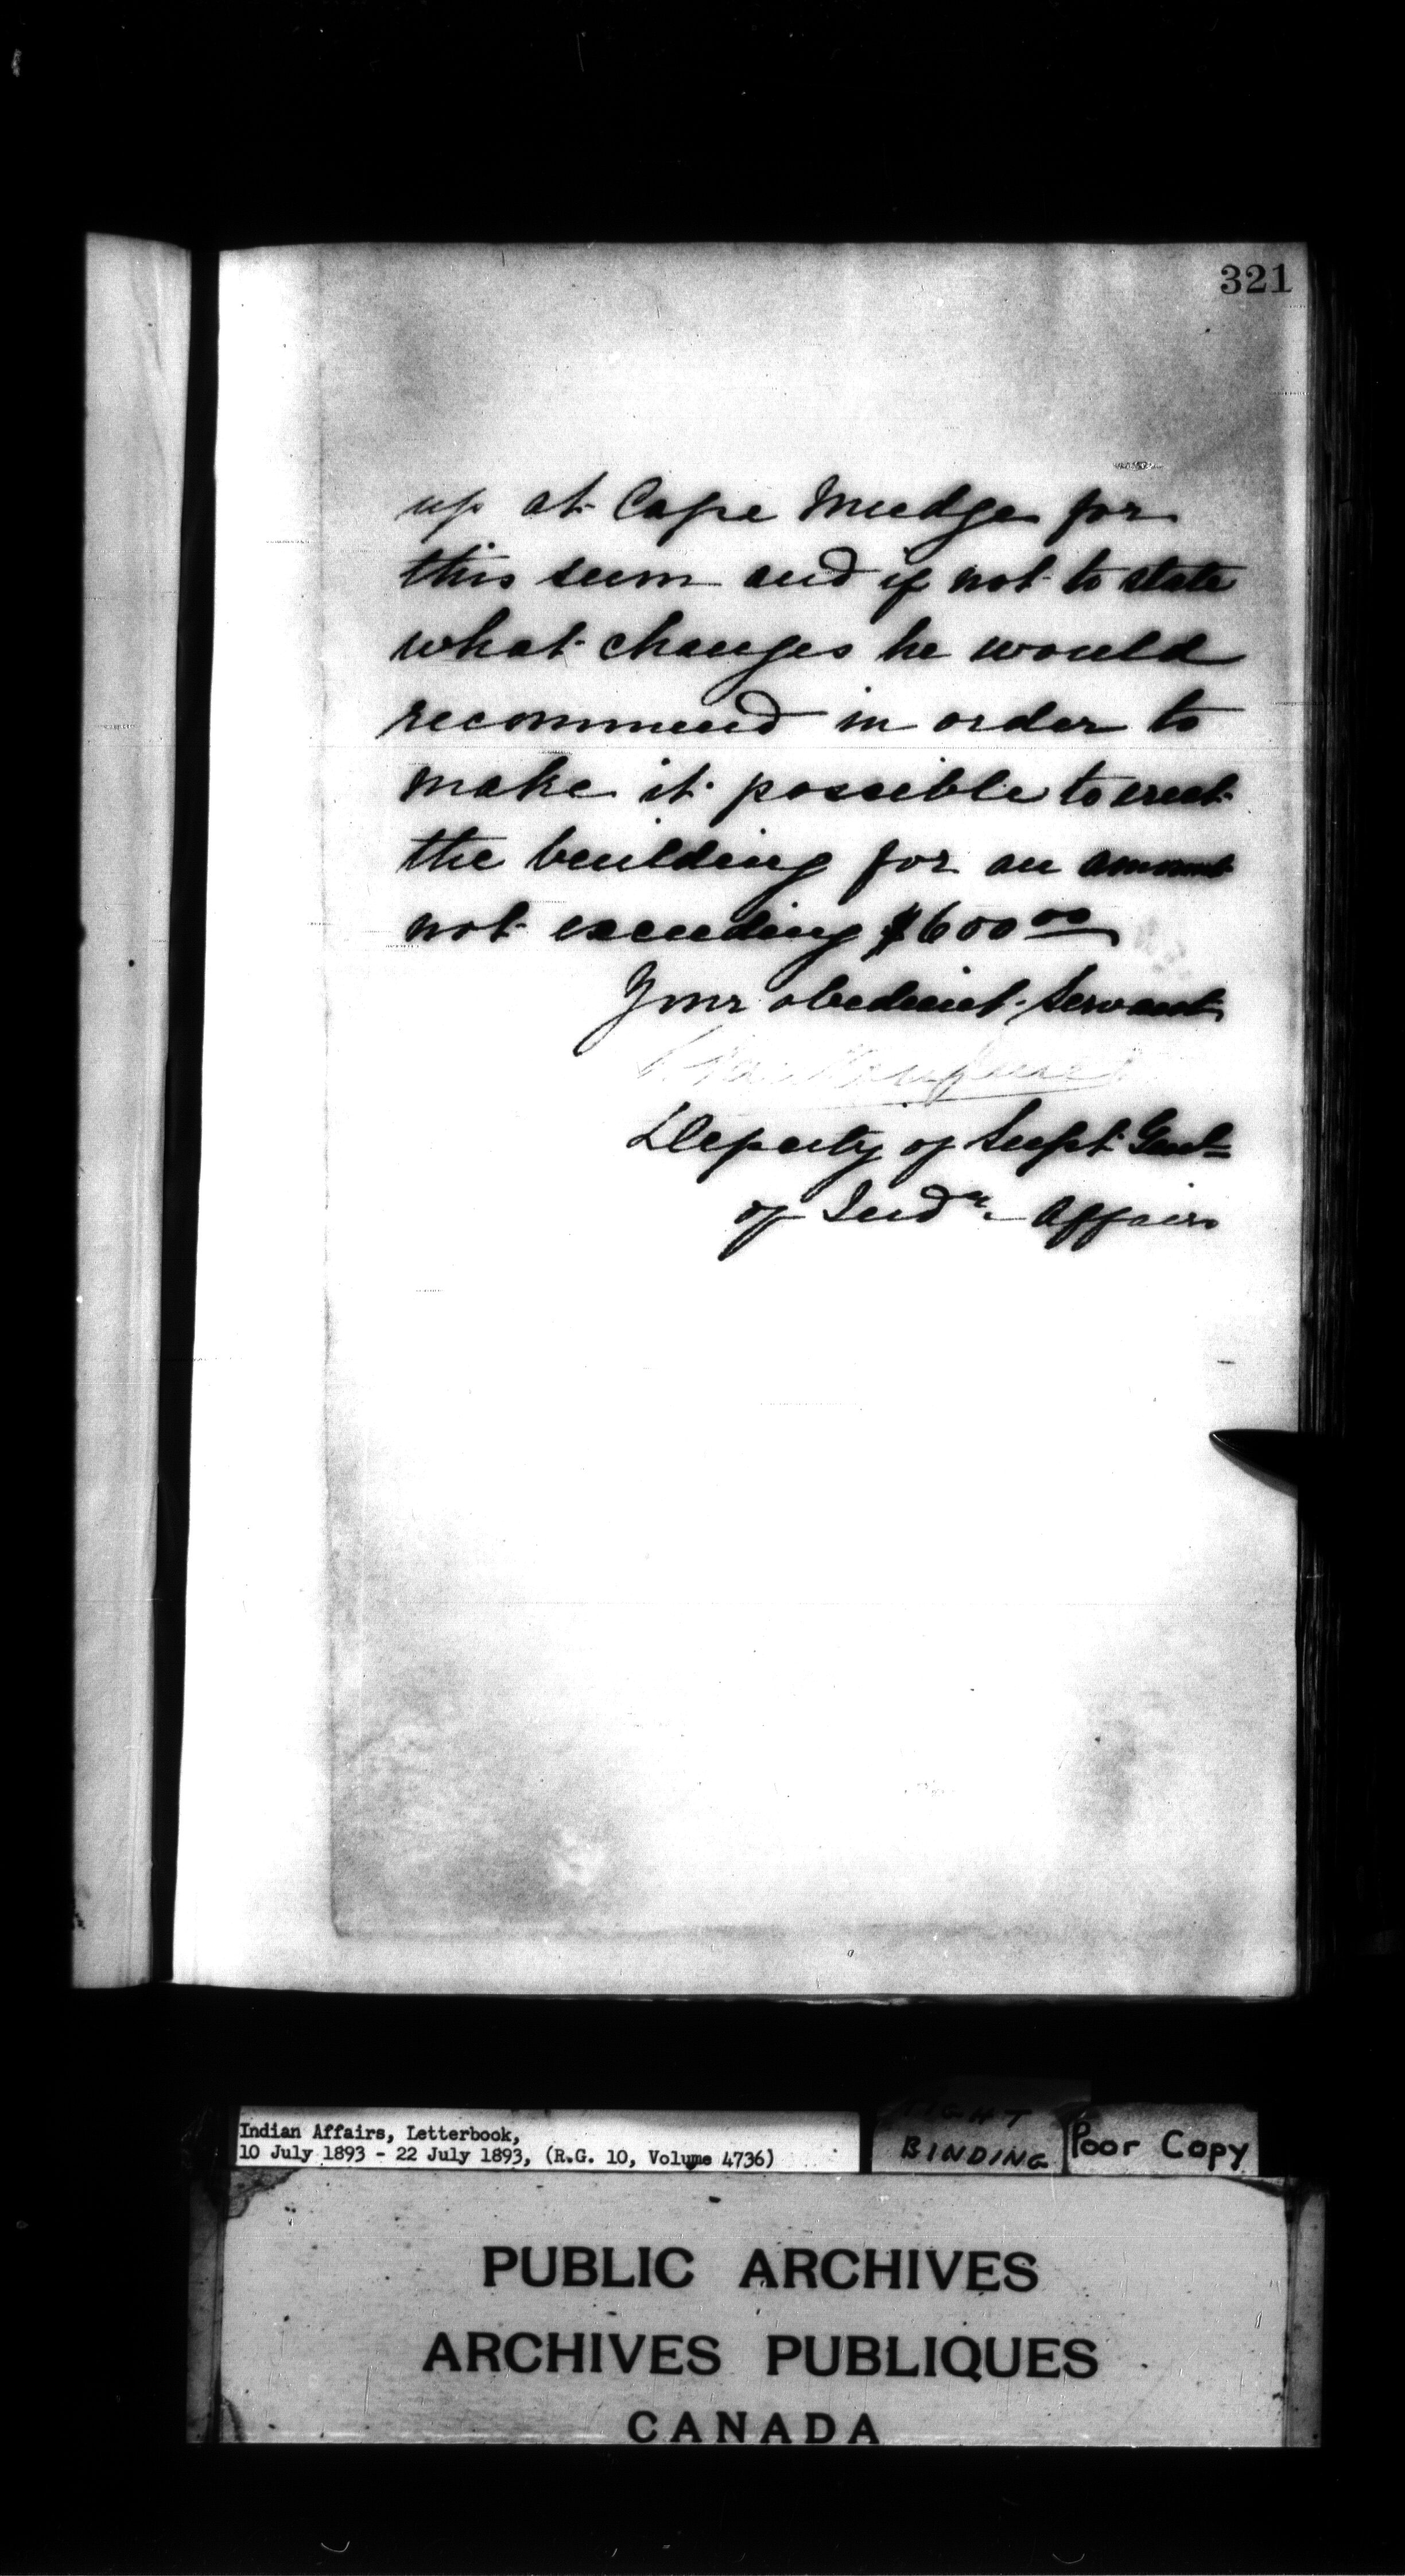 321
up at Cape Mudge for
this sum and if not to state
what changes he would
recommend in order to
make it possible to erect
the building for an amount
not exceeding $600 00
Your obedient Servant
L. Vankoughnet
Deputy of Supt Genl
of Indn Affairs
Indian Affairs, Letterbook,
10 July 1893 - 22 July 1893, (R.G. 10, Volume 4736)
TIGHT
BINDING
Poor Copy
PUBLIC ARCHIVES
ARCHIVES PUBLIQUES
CANADA